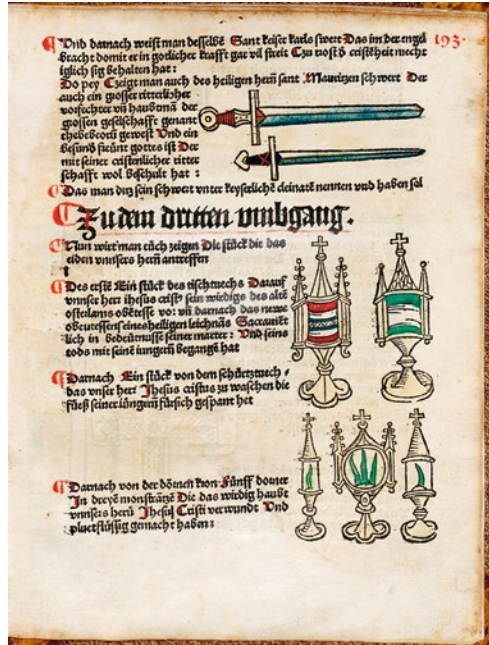 Und darnach weist man desselbē Sant keiser karls swert Das im der engel
bracht domit er in gotlicher krafft gar vil streit Czu trost d cristēheit mecht
iglich sig behalten hat :
Do pey Czeigt man auch des heiligen herrn sant Mauritzen schwert Der
auch ein grosser ritterlicher
vorfechter vn̄ haubtmā der
grossen geselschafft genant
thebebeorū gewest Vnd ein
besūnd freūnt gottes ist Der
mit seiner cristenlicher ritter
schafft wol beschult hat :
Das man ditz sein schwert vnter keyserlichē cleinatē nennen vnd haben sol
193
Zu dem dritten vmbgang.
Nun wirt man eüch zeigen Die stück die das
eiden vnnsers herrn antreffen
Des erstē Ein stück des tischtuechs Darauf
vnnser herr ihesus cristꝰ sein wirdigs des altē
osterlams obēt esse vor: vn̄ darnach das newe
obentessen seines heiligen leichnās Sacramēt
lich in bedeütnusse seiner marter : Vnd seins
tods mit seinē iungern begangē hat
Darnach Ein stück von dem schürtztuech
das vnser herr Jhesus cristus zu waschen die
füeß seiner iūngern fürsich gespant het
Darnach von der dörnen kron Fünff dorner
In dreyē monstrātzē Die das wirdig haubt
vnnsers herrn Jhesu Cristi verwundt Vnd
pluetflüssig gemacht haben :